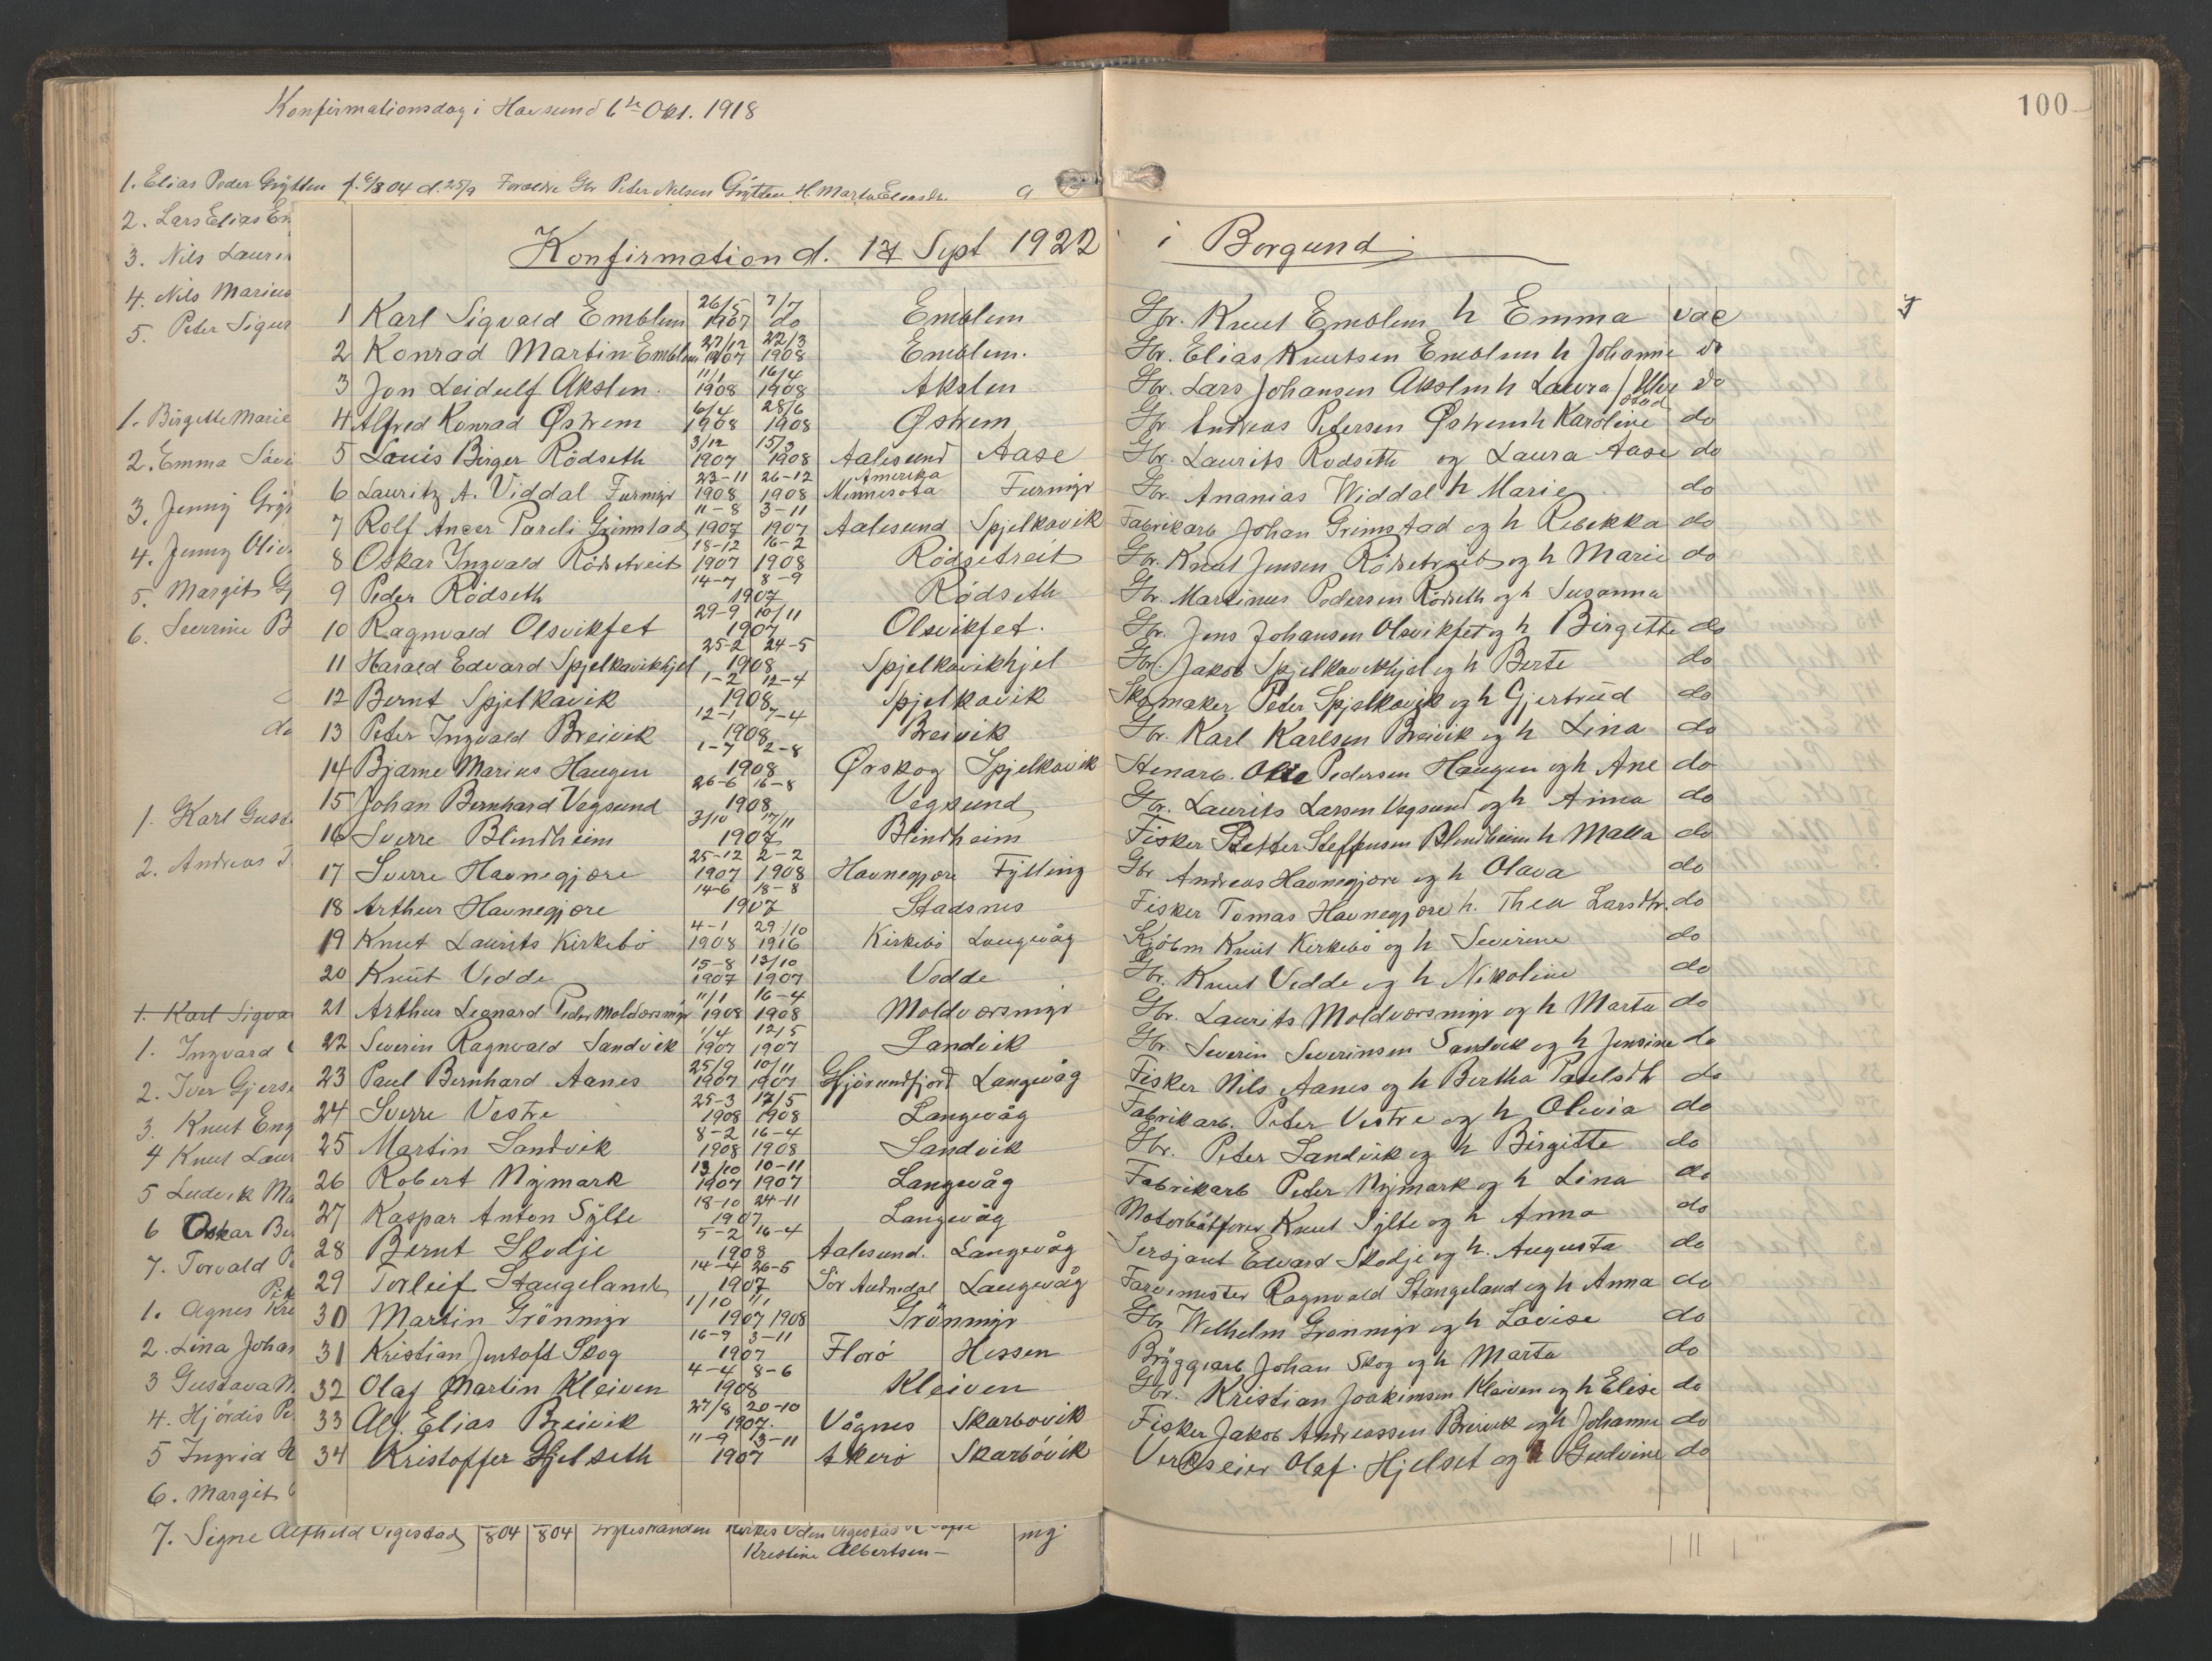 Konfirmationsdag i Havsund 6te Okt. 1918
100
1. Elias Peder Grytten f. 6/8 04 d. 25/9 Forældre Gbr Peter Nilsen Grytten H. Marta
2. Lars Elias
3. Nils
4. Nils Marius
5. Peter
1. Birgitte Marie
2. Emma
3. Jenny
4. Jenny
5. Margit
6. Severine B
1. Karl
2. Andreas
1. Karl
1. Ingvard
2. Iver
3. Knut
4 Knut
5 Ludvik
6 Oskar
7. Torvald
1. Agnes
2. Lina
3 Gustava
4. Hjördis
5 Ingrid
6. Margit
7. Signe 804 804
Kristine Albertsen mg
Konfirmation d. 17 Sept 1922 i Borgund
1 Karl Sigvald Emblem 26/5 1907 7/7 do Emblem Gbr. Knut Emblem h Emma vac
2 Konrad Martin Emblem 27/12 1907 22/3 1908 Emblem. Gbr. Elias Knutsen Emblem h Johanne do
3 Jon Leidulf Akslen. 11/1 1908 16/4 1908 Akslen Gbr. Lars Johansen Akslen h Laura do
4 Alfred Konrad Østrem 6/4 1908 28/6 1908 Østrem Gbr Andreas Petersen Østrem h Karoline do
5 Louis Birger Rödseth 3/12 1907 15/3 1908 Aalesund Aase Gbr. Laurits Rodseth og Laura Aase do
6 Lauritz A. Viddal Furmyr 23-11 1908 26-12 1908 Amerika Minnesota Furmyr Gbr. Ananias Widdal h Marie do
7 Rolf Anger Pareli Grimstad 11-8 1907 3-11 1907 Aalesund Spjelkavik Fabrikarb Johan Grimstad og h Rebekka do
8 Oskar Ingvald Rödsetreit 18-12 1907 16-2 1908 Rödsetreit Gbr. Knut Jensen Rödsetreit og h Marie do
9 Peder Rödseth 14-7 8-9 1907 Rödseth Gbr. Martinus Pedersen Rödseth og h Susanna
10 Ragnvald Olsvikfet 29-9 10/11 1907 Olsvikfet. Gbr. Jens Johansen Olsvikfet og h Birgitte do
11 Harald Edvard Spjelkavikhjel 25-2 24-5 1908 Spjelkavikhjel Gbr. Jakob Spjelkavikhjel og h Berte do
12 Bernt Spjelkavik 1-2 12-4 1908 Spjelkavik Skomaker Peter Spjelkavik og h Gjertrud do
13 Peter Ingvald Breivik 12-1 7-4 1908 Breivik Gbr. Karl Karlsen Breivik og h Lina do
14 Bjarne Marius Haugen 1-7 2-8 1908 Ørskog Spjelkavik Stenarb. Ole Pedersen Haugen og h Ane do
15 Johan Bernhard Vegsund 26-6 16-8 1908 Vegsund Gbr. Laurits Larsen Vegsund og h Anna do
16 Sverre Blindheim 3/10 17/11 1907 Blindheim Fisker Petter Steffensen Blindheim h Malla do
17 Sverre Havnegjøre 25-12 1907 2-2 1908 Havnegjøre Fylling Gbr Andreas Havnegjøre og h Olava do
18 Arthur Havnegjøre 14-6 18-8 1907 Stadsnes Fisker Tomas Havnegjøre h. Thea Larsdtr. do
19 Knut Laurits Kirkebö 4-1 1908 29/10 1916 Kirkebö Langevåg Kjöbm Knut Kirkebö og h Severine do
20 Knut Vedde 15-8 1907 13/10 1907 Vedde Gbr. Knut Vedde og h Nikoline do
21 Arthur Leonard Peder Moldværsmyr 11/1 1908 16-4 1908 Moldværsmyr Gbr. Laurits Moldværsmyr og h Marta do
22 Severin Ragnvald Sandvik 1/4 1907 12/5 1907 Sandvik Gbr. Severin Severinsen Sandvik og h Jensine do
23 Paul Bernhard Aanes 25/9 1907 10/11 1907 Hjörundfjord Langevåg Fisker Nils Aanes og h Bertha do
24 Sverre Vestre 25-3 1908 17/5 1908 Langevåg Fabrikarb. Peter Vestre og h Olivia do
25 Martin Sandvik 8-2 1908 16-4 1908 Sandvik Gbr. Peter Sandvik og h Birgitte do
26 Robert Nymark 13/10 1907 10-11 1907 Langevåg Fabrikarb Peter Nymark og h Lina do
27 Kaspar Anton Sylte 18-10 24-11 1907 Langevåg Motorbåtförer Knut Sylte og h Anna do
28 Bernt Skodje 5-2 16-4 1908 Aalesund. Langevåg Sersjant Edvard Skodje og h. Augusta do
29 Torleif Stangeland 14-4 26-5 1907 Sör Audnedal Langevåg Farvemester Ragnvald Stangeland og h Anna do
30 Martin Grönmyr 1/10 1907 1/1 1908 Grönmyr Gbr Wilhelm Grönmyr og h Lovise do
31 Kristian Jentoft Skog 16-9 3-11 1907 Florö Hessen Bryggearb Johan Skog og h Marta do
32 Olaf Martin Kleiven 4-4 8-6 1908 Kleiven Gbr. Kristian Joakimsen Kleiven og h Elise do
33 Alf. Elias Breivik 27/8 20-10 1907. Vågnes Skarbövik Fisker Jakob Andreassen Breivik og h Johanne do
34 Kristoffer Hjelseth 11-9 3-11 1907 Akerö Skarbövik Verkseier Olaf. Hjelset og h Gudvine do